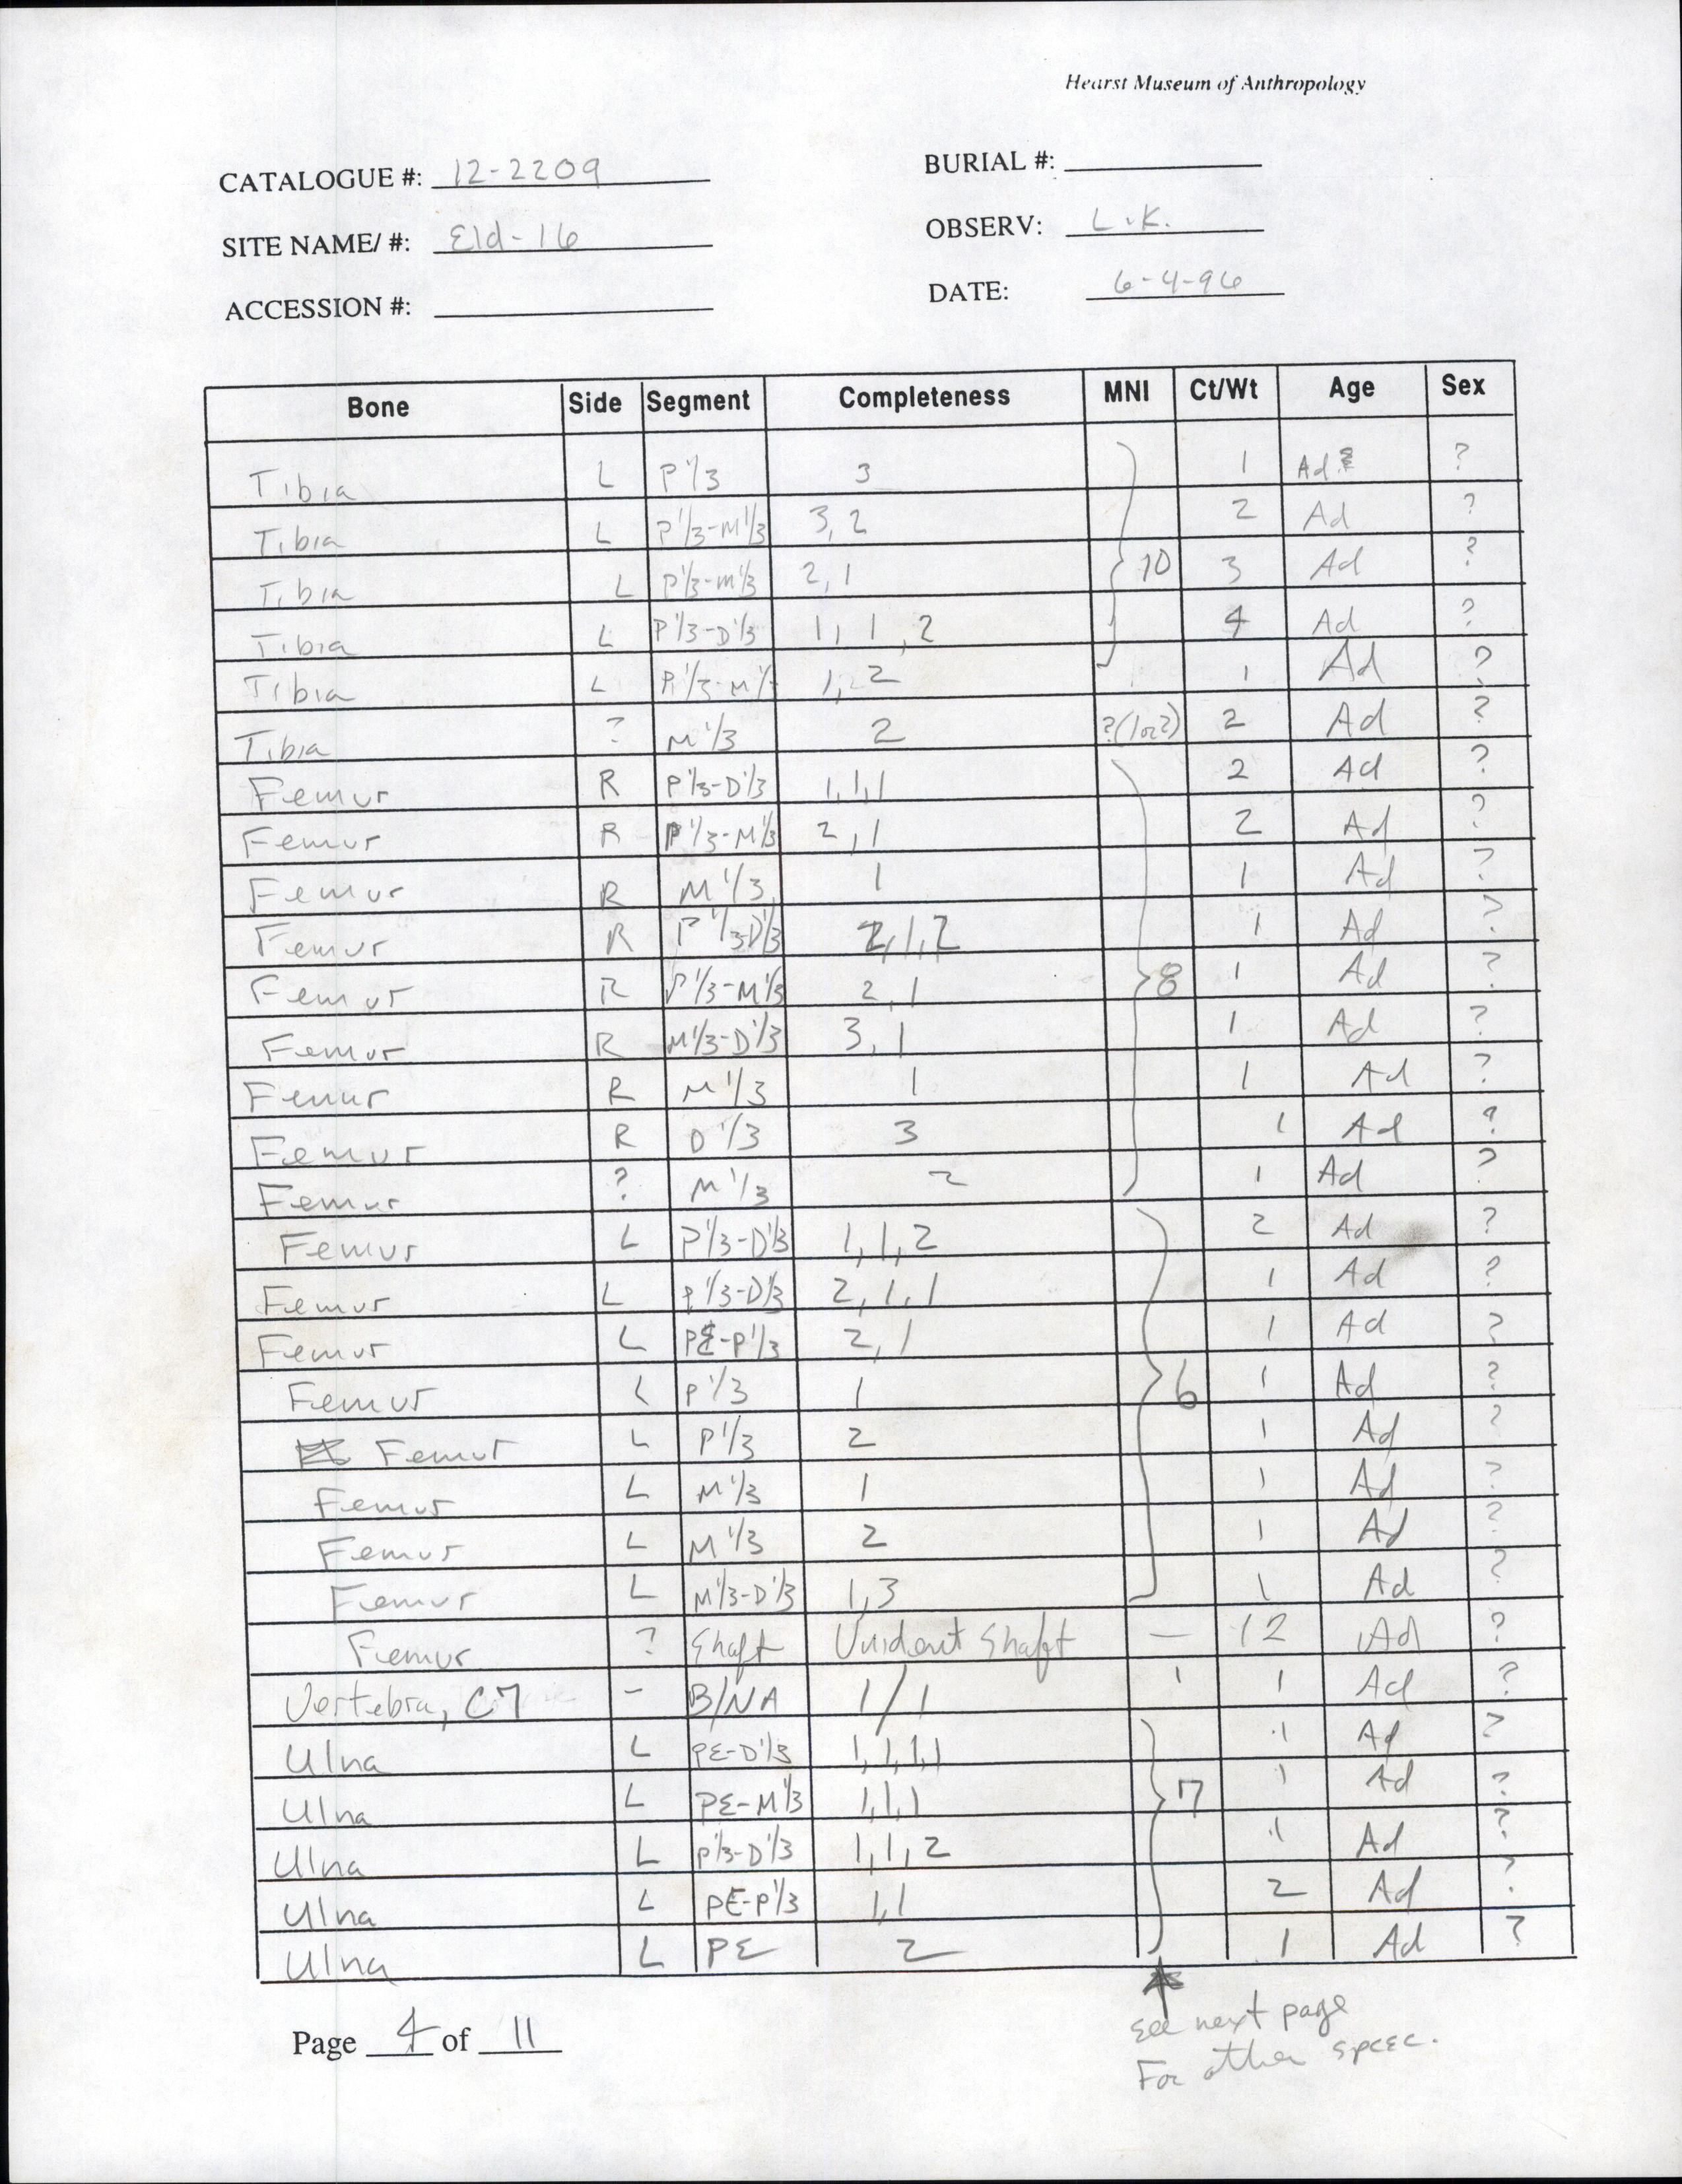 Hearst Museum of Anthropology
CATALOGUE #: 12-2209
BURIAL #:
SITE NAME/ #: Eld-16
OBSERV: L.K.
ACCESSION #:
DATE: 6-4-96
Bone Side Segment Completeness MNI Ct/Wt Age Sex
Tibia L P1/3 3 1 Ad ?
Tibia L P1/3-M1/3 3,2 2 Ad ?
Tibia L P1/3-M1/3 2,1 10 3 Ad ?
Tibia L P1/3-D1/3 1,1,2 4 Ad ?
Tibia L P1/3-M1/3 1,2 1 Ad ?
Tibia ? M1/3 2 ?(1or2) 2 Ad ?
Femur R P1/3-D1/3 1,1,1 2 Ad ?
Femur R P1/3-M1/3 2,1 2 Ad ?
Femur R M1/3 1 1 Ad ?
Femur R P1/3-D1/3 2,1,2 1 Ad ?
Femur R P1/3-M1/3 2,1 8 1 Ad ?
Femur R M1/3-D1/3 3,1 1 Ad ?
Femur R M1/3 1 1 Ad ?
Femur R D1/3 3 1 Ad ?
Femur ? M1/3 2 1 Ad ?
Femur L P1/3-D1/3 1,1,2 2 Ad ?
Femur L P1/3-D1/3 2,1,1 1 Ad ?
Femur L PE-P1/3 2,1 1 Ad ?
Femur L P1/3 1 6 1 Ad ?
Femur L P1/3 2 1 Ad ?
Femur L M1/3 1 1 Ad ?
Femur L M1/3 2 1 Ad ?
Femur L M1/3-D1/3 1,3 1 Ad ?
Femur ? Shaft Unident Shaft — 12 Ad ?
Vertebra, C7 - B/NA 1/1 1 1 Ad ?
Ulna L PE-D1/3 1,1,1,1 1 Ad ?
Ulna L PE-M1/3 1,1,1 7 1 Ad ?
Ulna L P1/3-D1/3 1,1,2 1 Ad ?
Ulna L PE-P1/3 1,1 2 Ad ?
Ulna L PE 2 1 Ad ?
Page 4 of 11
see next page
For other spcec.